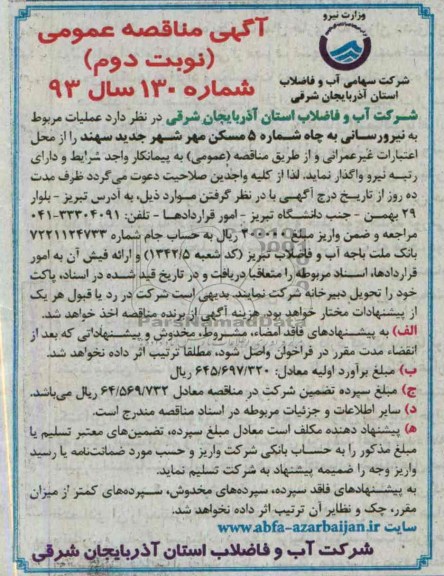 وزارت نیرو
شرکت سهامی آب و فاضلاب
استان آذربایجان شرقی
آگهی مناقصه عمومی
(نوبت دوم)
شماره ۱۳۰ سال ۹۳
شرکت آب و فاضلاب استان آذربایجان شرقی در نظر دارد عملیات مربوط
به نیرورسانی به چاه شماره ۵ مسکن مهر شهر جدید سهند را از محل
اعتبارات غیرعمرانی و از طریق مناقصه (عمومی) به پیمانکار واجد شرایط و دارای
رتبه نیرو واگذار نماید. لذا از کلیه واجدین صلاحیت دعوت می‌گردد ظرف مدت
ده روز از تاریخ درج آگهی با در نظر گرفتن موارد ذیل، به آدرس تبریز - بلوار
۲۹ بهمن - جنب دانشگاه تبریز - امور قراردادها - تلفن: ۳۳۳۰۴۰۹۱-۰۴۱
مراجعه و ضمن واریز مبلغ ریال به حساب جام شماره ۷۲۲۱۱۲۴۷۳۳
بانک ملت باجه آب و فاضلاب تبریز (کد شعبه ۱۳۴۲/۵) و ارائه فیش آن به امور
قراردادها، اسناد مربوطه را متعاقبا دریافت و در تاریخ قید شده در اسناد، پاکت
خود را تحویل دبیرخانه شرکت نمایند. بدیهی است شرکت در رد یا قبول هر یک
از پیشنهادات مختار خواهد بود. هزینه آگهی از برنده مناقصه اخذ خواهد شد.
الف) به پیشنهادهای فاقد امضاء، مشروط، مخدوش و پیشنهاداتی که بعد از
انقضاء مدت مقرر در فراخوان واصل شود، مطلقا ترتیب اثر داده نخواهد شد.
ب) مبلغ برآورد اولیه معادل: ۶۴۵/۶۹۷/۳۲۰ ریال
ج) مبلغ سپرده تضمین شرکت در مناقصه معادل ۶۴/۵۶۹/۷۳۲ ریال می‌باشد.
د) سایر اطلاعات و جزئیات مربوطه در اسناد مناقصه مندرج است.
ه) پیشنهاد دهنده مکلف است معادل مبلغ سپرده، تضمین‌های معتبر تسلیم یا
مبلغ مذکور را به حساب بانکی شرکت واریز و حسب مورد ضمانت‌نامه یا رسید
واریز وجه را ضمیمه پیشنهاد به شرکت تسلیم نماید.
به پیشنهادهای فاقد سپرده، سپرده‌های مخدوش، سپرده‌های کمتر از میزان
مقرر، چک و نظایر آن ترتیب اثر داده نخواهد شد.
سایت www.abfa-azarbaijan.ir
شرکت آب و فاضلاب استان آذربایجان شرقی
ParsNamadData